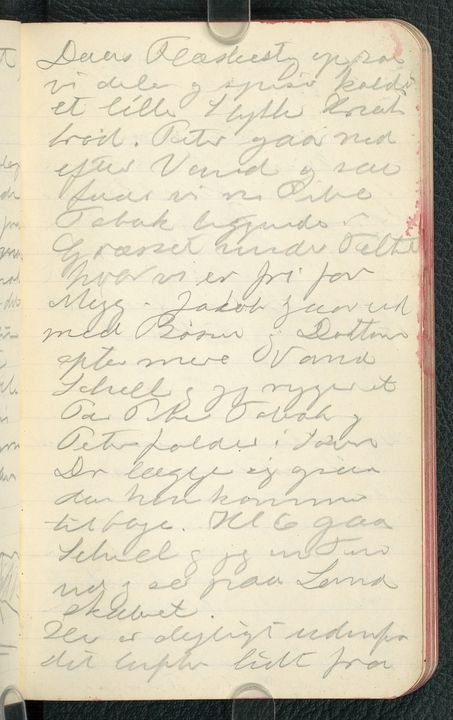 Daas Flæskesteg og saa
vi deler g spiser koldt
et lille Stykke Knæk
brød. Peter gaar ned
efter Vand g saa
faar vi en Pibe
Tobak liggende i
Græsset under Teltet
hvor vi er fri for
Myg. Jakob gaar ud
med Bøssen g Doktoren
efter mere Vand
Schell g jeg ryger et
Par Piber Tobak g
Peter falder i Søvn
Dr lægge sig
da han kommer
tilbage. Kl 6 gaa
Schell g jeg en Tur
ud g se paa Land
skabet.
Her er dejligt udenfor
det lufter lidt fra